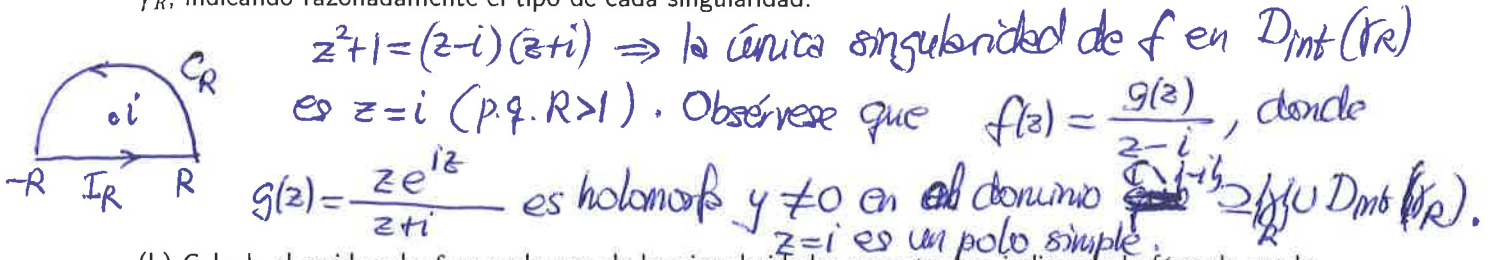 γ_R, indicando razonadamente el tipo de cada singularidad.
z²+1=(z-i)(z+i) ⇒ la única singularidad de f en D_int(γ_R)
C_R
i
es z=i (p.q. R>1). Obsérvese que f(z) = g(z)/(z-i), donde
-R I_R R
g(z) = ze^{iz}/(z+i) es holomorfa y ≠0 en el dominio ⊇ |γ_R| ∪ D_int(γ_R).
z=i es un polo simple.